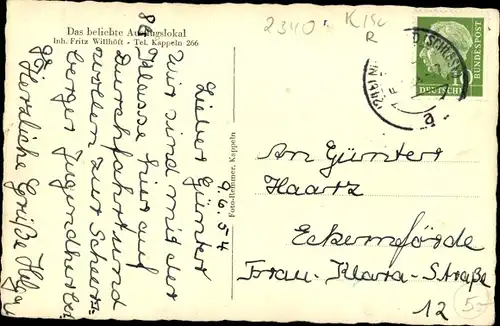 2340 Kisc
R
Das beliebte Ausflugslokal
Inh. Fritz Willhöft - Tel. Kappeln 266
DEUTSCHE
BUNDESPOST
9.6.54
Lieber Günter
Wir sind mit der
8a Klasse hier auf
Durchfahrt und
wollen zur Scheers-
berger Jugendherbe.
Herzliche Grüße Helga
Foto-Remmer, Kappeln
An Günter
Haartz
Eckernförde
Frau-Klara-Straße
12
5-